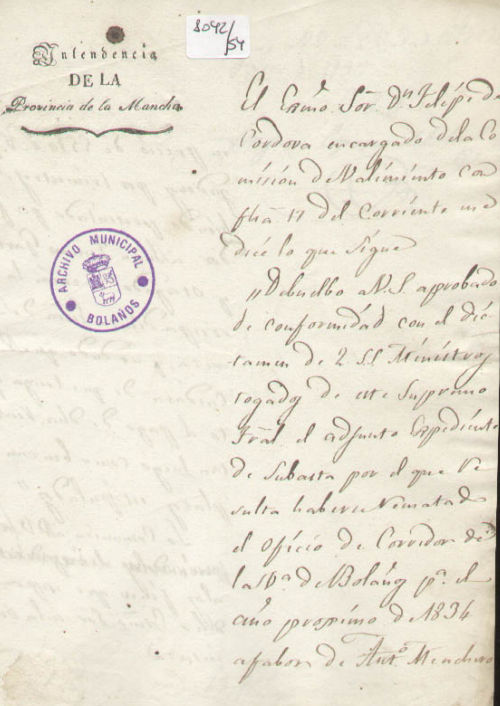 8042/54
Intendencia
DE LA
Provincia de la Mancha
ARCHIVO MUNICIPAL
BOLAÑOS
El Exmo. Sor. Dn. Felipe de
Cordova encargado de la Co
mision de Valimiento con
fha 17 del Corriente me
dice lo que sigue
"Debuelbo a V.S. aprobado
de conformidad con el dic
tamen de 2 SS. Ministros
togados de este Supremo
Tral. el adjunto Expediente
de Subasta por el que re
sulta haberse rematado
el oficio de Corredor de
la Va. de Bolaños pa. el
año proximo de 1834
a fabor de Anto. Menchero